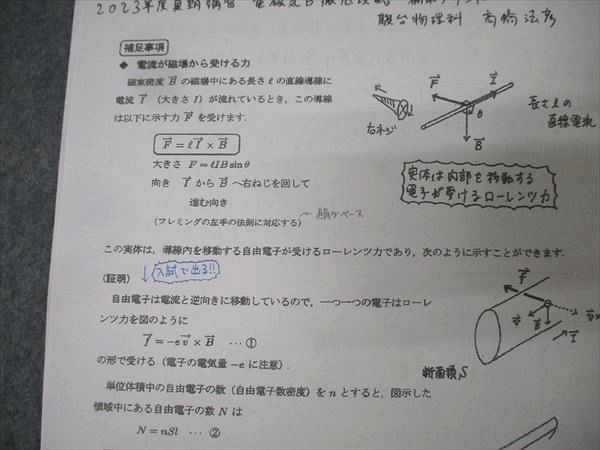 2023年度夏期講習 電磁気
駿台物理科 高橋法彦
補足事項
◆ 電流が磁場から受ける力
磁束密度 B⃗ の磁場中にある長さ ℓ の直線導線に
電流 I⃗ (大きさ I) が流れているとき,この導線
は以下に示す力 F⃗ を受けます.
F⃗ = ℓI⃗ × B⃗
大きさ F = ℓIB sin θ
向き I⃗ から B⃗ へ右ねじを回して
進む向き
(フレミングの左手の法則に対応する)
右ネジ
F⃗
I⃗
θ
B⃗
長さlの
直線電流
実体は内部を移動する
電子が受けるローレンツ力
この実体は,導線内を移動する自由電子が受けるローレンツ力であり,次のように示すことができます.
(証明) ↓ 入試で出る!!
自由電子は電流と逆向きに移動しているので,一つ一つの電子はローレ
ンツ力を図のように
f⃗ = −ev⃗ × B⃗ ⋯ ①
の形で受ける (電子の電気量 −e に注意).
単位体積中の自由電子の数 (自由電子数密度) を n とすると,図示した
領域中にある自由電子の数 N は
N = nSl ⋯ ②
f⃗
v⃗
B⃗
I⃗
断面積S